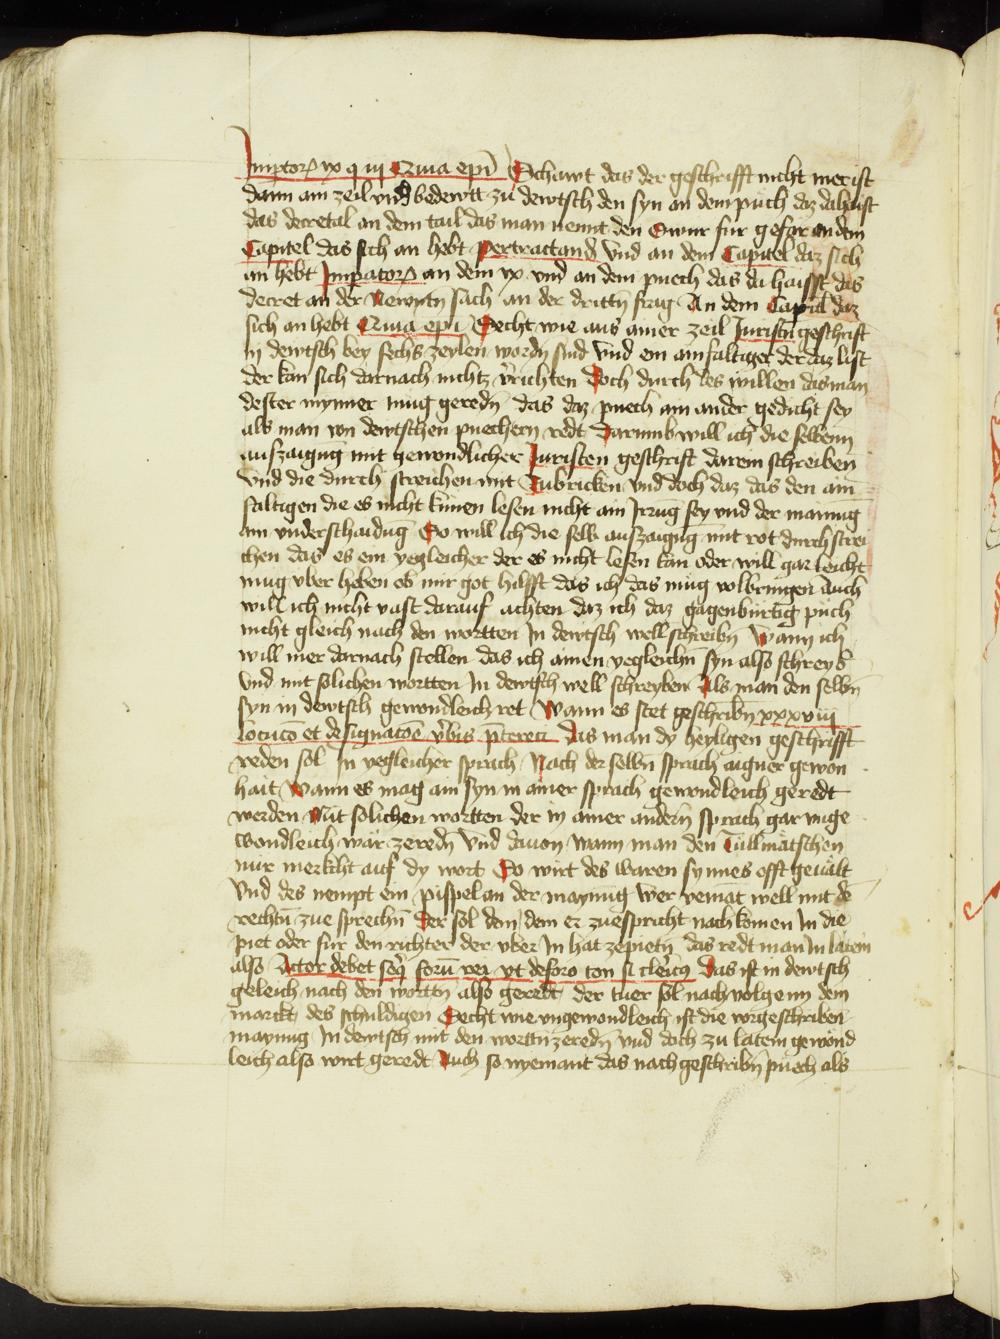 Impator℞ xv q iij Quia epi Schawt das der geschrifft nicht mer ist
dann ain zeil vnd bedewtt zu dewtsch den syn an dem puch daz da haist
das decretal an dem tail das man nennt den Ewur fur gesar an dem
Capitel das sich an hebt Pertractand vnd an dem Capitel daz sich
an hebt Impator℞ an dem xv vnd an dem puech das da haisst das
decret an der Newntn sach an der dritten frag An dem Capitl daz
sich an hebt Quia epi Secht wie aus ainer zeil Juristn geschrift
in dewtsch bey sechs zeylen wordn sind vnd ein ainfaltiger der daz list
der kan sich darnach nichtz verichten Doch durch des willen das man
dester mynner mug geredn das daz puech ain ander gedicht sey
als man von dewtschen puechern redt Darumb will ich die selbenn
aufzaigug mit gewondlicher Juristen geschrift darein schreiben
vnd die durch streichen mit Rubricken vnd doch daz das den ain
faltigen die es nicht kunnen lesen nicht ain Irrug sey vnd der mainug
ain vnderschaidug So will ich die selb aufzaigug mit rot durchstrei
chen das es ein yegleicher der es nicht lesen kan oder will gar leicht
mug vber heben ob mir got hilfft das ich das mug volbringen Auch
will ich nicht vast darauf achten daz ich daz gagenburtig puch
nicht gleich nach den wortten In dewtsch well schreibn Wann ich
will mer darnach stellen das ich ainen yegleichn syn also schreyb
vnd mit solichen wortten In dewtsch well schreyben Als man den selbn
syn in dewtsch gewondleich ret Wann es stet geschribn xxxviij
locucō et designacōe v̄bis p̄terea Das man dy heyligen geschrifft
reden sol In yegleicher sprach Nach der selbn sprach aigner gewon
hait Wann es mag ain syn in ainer sprach gewondleich geredt
werden Mit solichen wortten der in ainer andern sprach gar vnge
wondleich wär zeredn Vnd dauon wann man den Tullmätschen
nür merkcht auf dy wort So wirt des waren synnes offt geuält
Vnd des nempt ein pispel an der maynug Wer yemāt well mit dē
rechtn zue sprechn Der sol den dem er zuespricht nach komen In die
piet oder für den richter der vber In hat zepietn das redt man In latein
also Actor debet seq̄ forū rei vt de foro con si cleric9 Das ist in dewtsch
geleich nach den worttn also geredt der tuer sol nachuolgenn dem
marckt des schuldigen Secht wie vngewondleich ist die vorgeschriben
maynug In dewtsch mit den worttn zeredn vnd doch zu latein gewond
leich also wirt geredt Auch so nyemant das nachgeschribn puech als